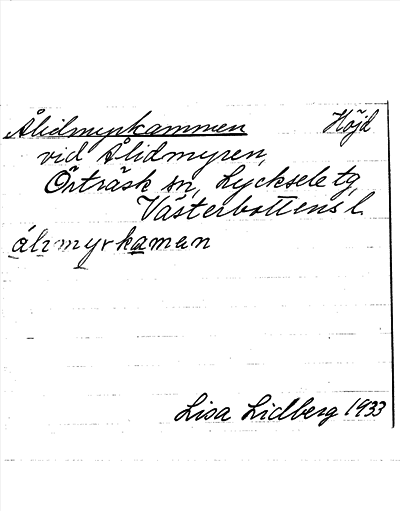 Ålidmyrkammen Höjd
vid Ålidmyren,
Örträsk sn, Lycksele tg,
Västerbottens l.
álımyrkaman
Lisa Lidberg 1933